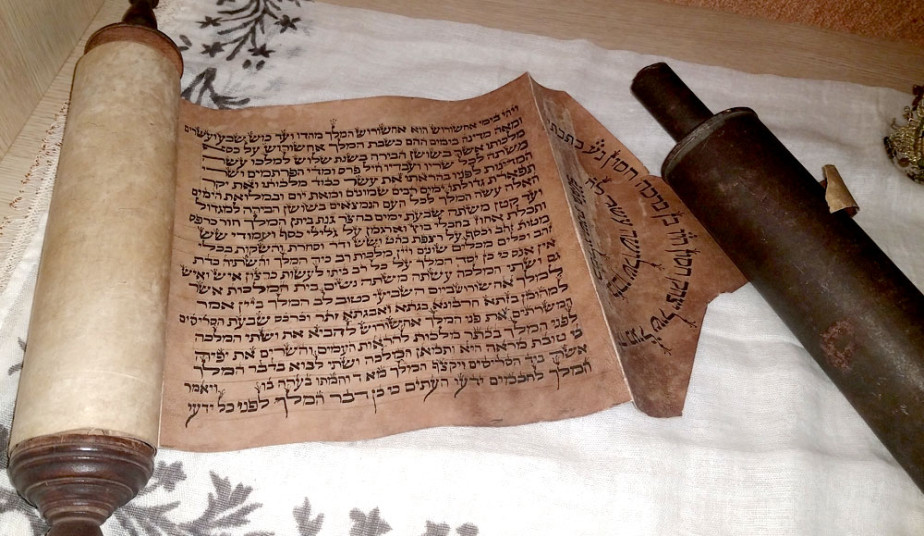 ויהי בימי אחשורוש הוא אחשורוש המלך מהדו ועד כוש שבע ועשרים
ומאה מדינה בימים ההם כשבת המלך אחשורוש על כסא
מלכותו אשר בשושן הבירה בשנת שלוש למלכו עשה
משתה לכל שריו ועבדיו חיל פרס ומדי הפרתמים ושרי
המדינות לפניו בהראתו את עשר כבוד מלכותו ואת יקר
תפארת גדולתו ימים רבים שמונים ומאת יום ובמלואת הימים
האלה עשה המלך לכל העם הנמצאים בשושן הבירה למגדול
ועד קטן משתה שבעת ימים בחצר גנת ביתן המלך חור כרפס
ותכלת אחוז בחבלי בוץ וארגמן על גלילי כסף ועמודי שש
מטות זהב וכסף על רצפת בהט ושש ודר וסחרת והשקות בכלי
זהב וכלים מכלים שונים ויין מלכות רב כיד המלך והשתיה כדת
אין אנס כי כן יסד המלך על כל רב ביתו לעשות כרצון איש ואיש
גם ושתי המלכה עשתה משתה נשים בית המלכות אשר
למלך אחשורוש ביום השביעי כטוב לב המלך ביין אמר
למהומן בזתא חרבונא בגתא ואבגתא זתר וכרכס שבעת הסריסים
המשרתים את פני המלך אחשורוש להביא את ושתי המלכה
לפני המלך בכתר מלכות להראות העמים והשרים את יפיה
כי טובת מראה היא ותמאן המלכה ושתי לבוא בדבר המלך
אשר ביד הסריסים ויקצף המלך מאד וחמתו בערה בו ויאמר
המלך לחכמים ידעי העתים כי כן דבר המלך לפני כל ידעי